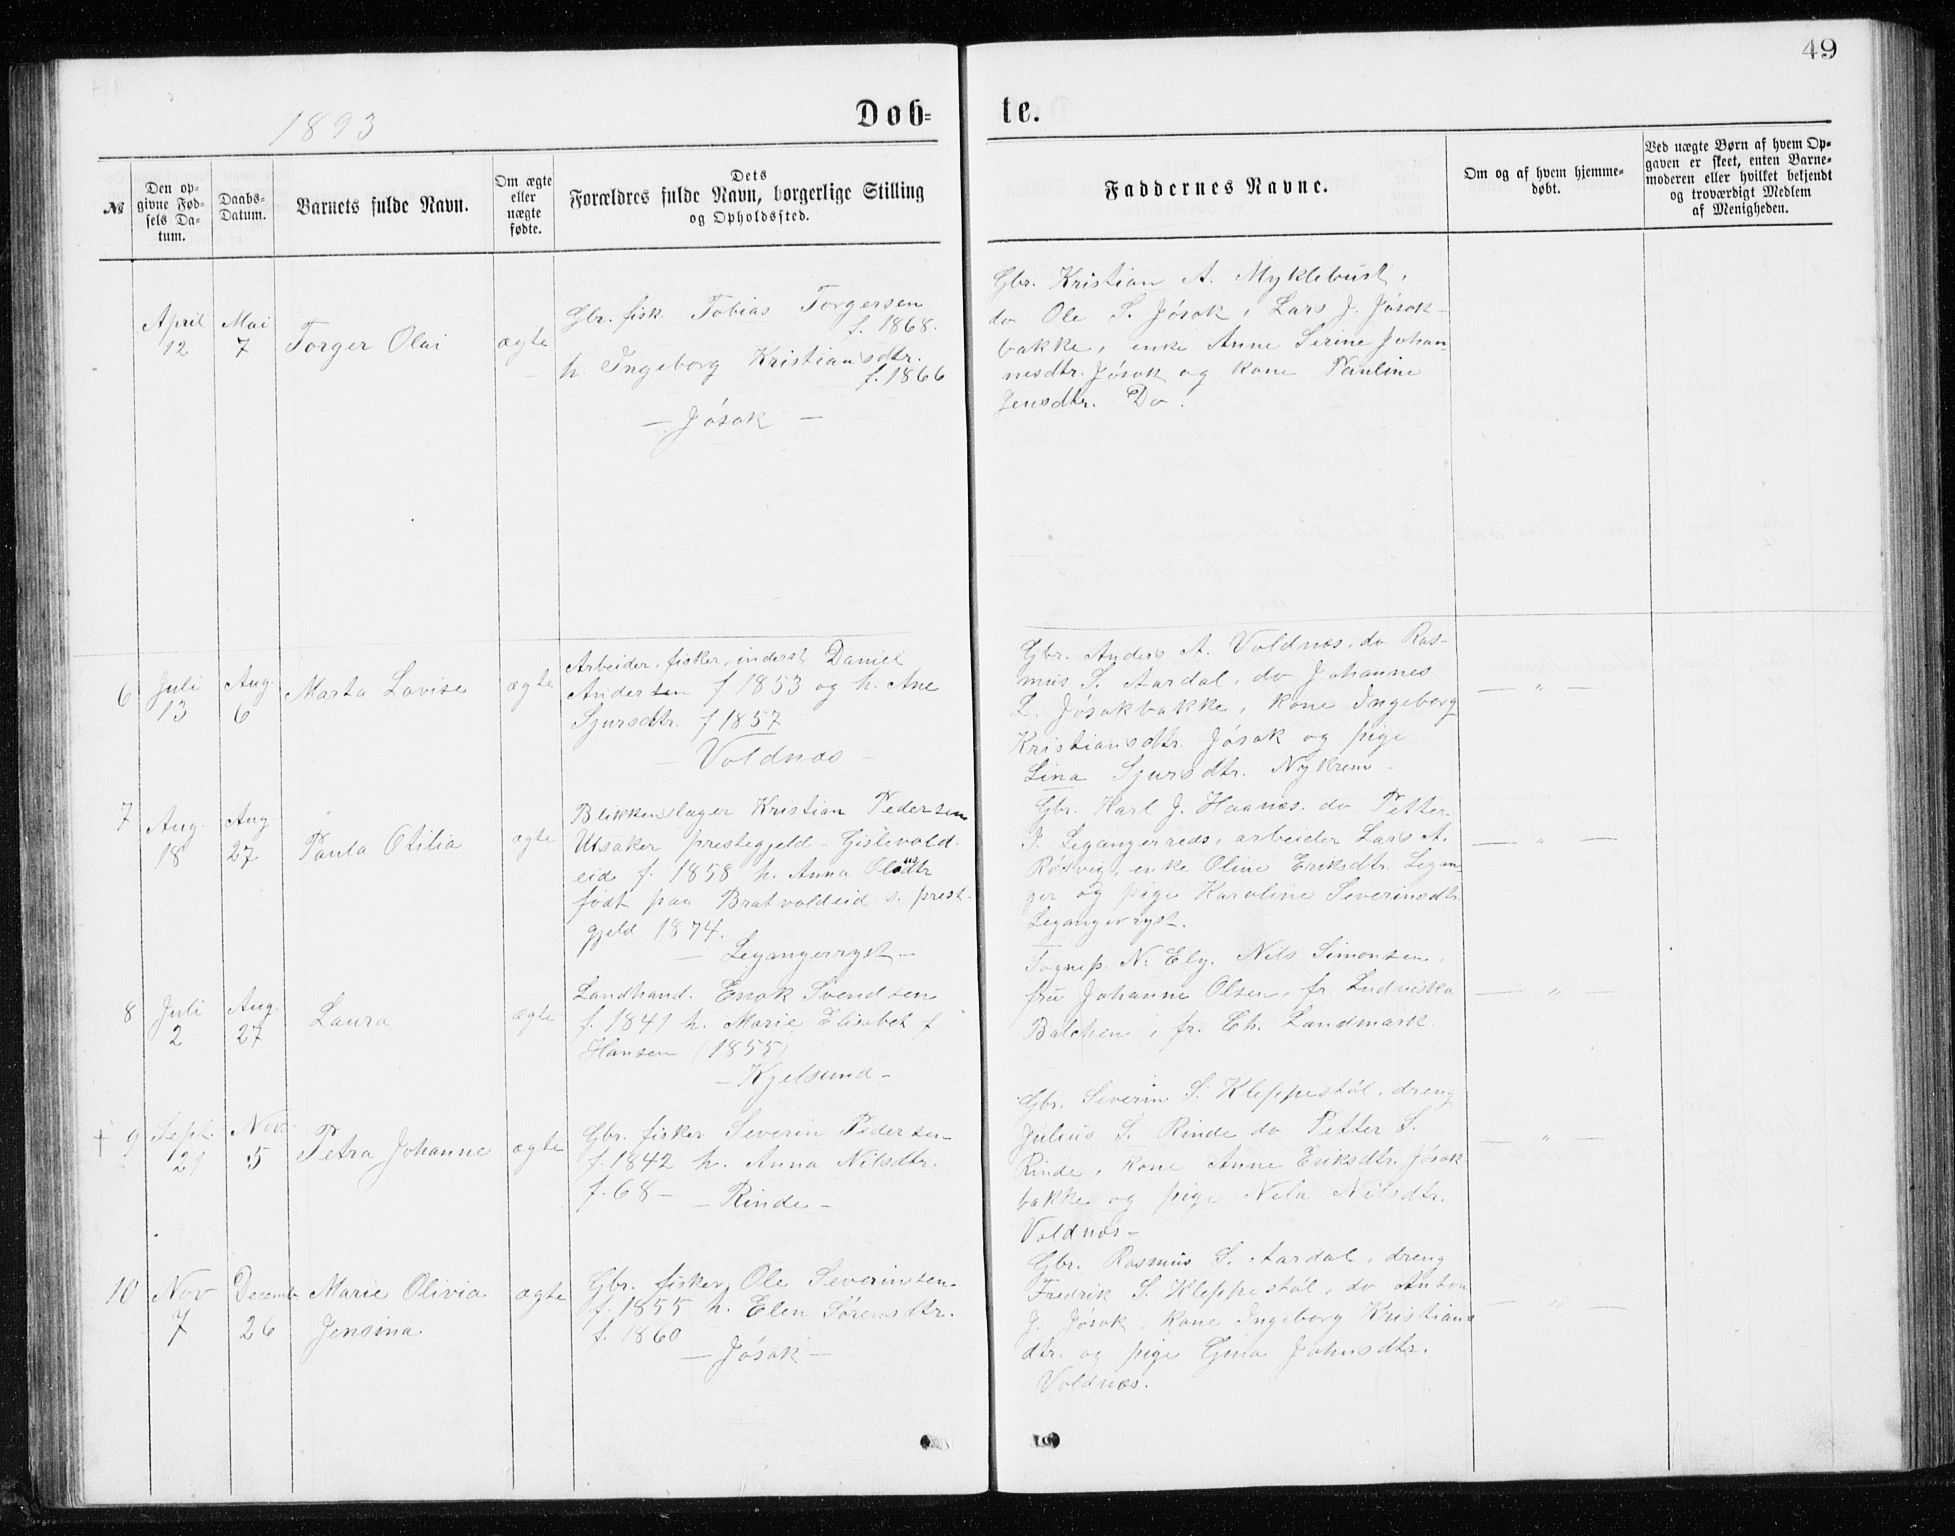 49
1893
Døb=
te.
№
Den op-
givne Fød-
sels Da-
tum.
Daabs-
Datum.
Barnets fulde Navn.
Om ægte
eller
uægte
fødte.
Dets
Forældres fulde Navn, borgerlige Stilling
og Opholdssted.
Faddernes Navne.
Om og af hvem hjemme-
døbt.
Ved uægte Børn af hvem Op-
gaven er skeet, enten Barne-
moderen eller hvilket bekjendt
og troværdigt Medlem
af Menigheden.
April
12
Mai
7
Torger Olai
ægte
Gbr. fisk. Tobias Torgersen
f. 1868.
h. Ingeborg Kristiansdtr.
f. 1866
— Jøsok —
Gbr. Kristian A. Myklebust,
do Ole S. Jøsok, Lars J. Jøsok-
bakke, enke Anne Serine Johan-
nesdtr. Jøsok og kone Pauline
Jensdtr. Do.
6
Juli
13
Aug.
6
Marta Lovise
ægte
Arbeider, fisker, inderst Daniel
Andersen f 1853 og h. Ane
Sjursdtr. f 1857
— Voldnæs —
Gbr. Anders A. Voldnæs, do Ras-
mus S. Aardal, do Johannes
L. Jøsokbakke, kone Ingeborg
Kristiansdtr. Jøsok og pige
Lina Sjursdtr. Nykrem —
— „ —
7
Aug.
18
Aug
27
Paula Otilia
ægte
Blikkenslager Kristian Pedersen
Utsaker prestegjeld - Gislevold-
eid f. 1858 h. Anna Olausdtr
født paa Bratvoldeid s. prest-
gjeld 1874.
— Legangerryst —
Gbr. Karl J. Haanæs, do Petter
J. Legangerreds, arbeider Lars A.
Røsvig, enke Oline Eriksdtr. Legan-
ger og pige Karoline Severinsdtr
Legangerryst.
— „ —
8
Juli
2
Aug.
27
Laura
ægte
Landhand. Enok Svendsen
f. 1841 h. Marie Elisabet f
Hansen (1855)
— Kjelsund —
Sognep. N. Ely. Nils Simonsen,
fru Johanne Olsen, fr. Ludviska
Balchen, fr. Ch. Landmark.
— „ —
+ 9
Sept.
21
Nov.
5
Petra Johanne
ægte
Gbr. fisker Severin Pedersen
f. 1842 h. Anna Nilsdtr.
f. 68 — — Rinde —
Gbr. Severin S. Kleppestøl, dreng
Julius S. Rinde do Petter S.
Rinde, kone Anne Eriksdtr. Jøsok
bakke og pige Nela Nilsdtr.
Voldnæs —
— „ —
10
Nov
7
Decemb
26
Marie Olivia
Jensina
ægte
Gbr. fisker Ole Severinsen
f. 1855 h. Elen Sørensdtr.
f. 1860
— Jøsok —
Gbr. Rasmus S. Aardal, dreng
Fredrik S. Kleppestøl, do Anton
J. Jøsok, kone Ingeborg Kristians
dtr. og pige Gina Johnsdtr.
Voldnæs.
— „ —